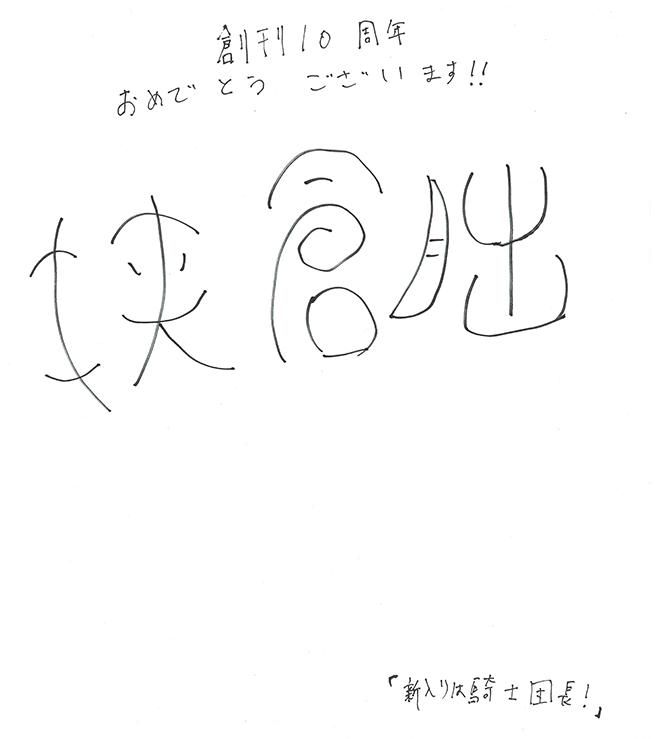 創刊10周年
おめでとう ございます!!
狭倉朏
「新入りは騎士団長!」